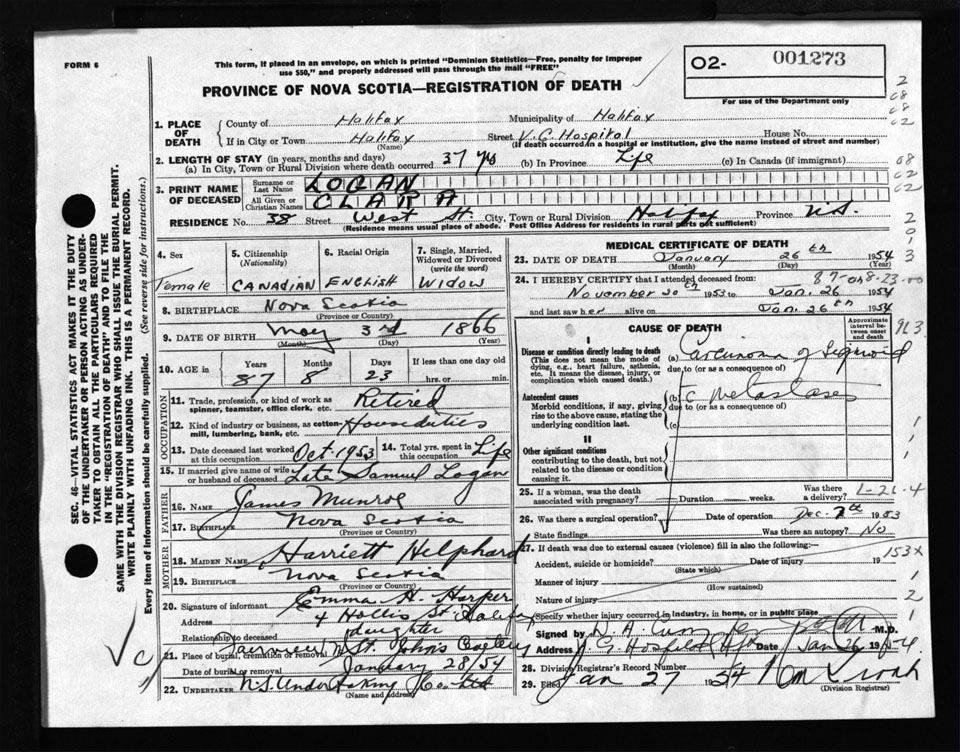 FORM 6
This form, if placed in an envelope, on which is printed "Dominion Statistics—Free, penalty for improper
use $50," and properly addressed will pass through the mail "FREE"
O2- 001273
For use of the Department only
PROVINCE OF NOVA SCOTIA—REGISTRATION OF DEATH
1. PLACE OF DEATH
County of Halifax Municipality of Halifax
If in City or Town Halifax Street V.G. Hospital House No.
(Name) (If death occurred in a hospital or institution, give the name instead of street and number)
2. LENGTH OF STAY (in years, months and days)
(a) In City, Town or Rural Division where death occurred 37 yrs (b) In Province Life (c) In Canada (if immigrant)
3. PRINT NAME OF DECEASED
Surname or Last Name LOGAN
All Given or Christian Names CLARA
RESIDENCE No. 38 Street West St. City, Town or Rural Division Halifax Province N.S.
(Residence means usual place of abode. Post Office Address for residents in rural parts not sufficient)
4. Sex Female
5. Citizenship (Nationality) CANADIAN
6. Racial Origin ENGLISH
7. Single, Married, Widowed or Divorced (write the word) WIDOW
8. BIRTHPLACE Nova Scotia
(Province or Country)
9. DATE OF BIRTH May 3rd 1866
(Month) (Day) (Year)
10. AGE in Years Months Days If less than one day old
87 8 23 hrs. or min.
OCCUPATION
11. Trade, profession, or kind of work as
spinner, teamster, office clerk, etc. Retired
12. Kind of industry or business, as cotton-
mill, lumbering, bank, etc. Houseduties
13. Date deceased last worked
at this occupation Oct. 1953
14. Total yrs. spent in
this occupation Life
15. If married give name of wife
or husband of deceased Late Samuel Logan
FATHER
16. NAME James Munroe
17. BIRTHPLACE Nova Scotia
(Province or Country)
MOTHER
18. MAIDEN NAME Harriett Helphard
19. BIRTHPLACE Nova Scotia
(Province or Country)
20. Signature of informant Emma H. Harper
Address 4 Hollis St. Halifax
Relationship to deceased daughter
21. Place of burial, cremation or removal Fairview St. John's
Date of burial or removal January 28/54
22. UNDERTAKER N.S. Undertaking Co. Ltd
(Name and address)
MEDICAL CERTIFICATE OF DEATH
23. DATE OF DEATH January 26th 1954
(Month) (Day) (Year)
24. I HEREBY CERTIFY that I attended deceased from 87-8-23
November 20th 1953 to Jan. 26 1954
and last saw her alive on Jan. 26th 1954
CAUSE OF DEATH
Approximate interval between onset and death
I
Disease or condition directly leading to death
(This does not mean the mode of
dying, e.g., heart failure, asthenia,
etc. It means the disease, injury, or
complication which caused death.)
(a) Carcinoma of Sigmoid
due to (or as a consequence of)
Antecedent causes
Morbid conditions, if any, giving
rise to the above cause, stating the
underlying condition last.
(b) c metastases
due to (or as a consequence of)
(c)
II
Other significant conditions
contributing to the death, but not
related to the disease or condition
causing it.
25. If a woman, was the death
associated with pregnancy? Duration weeks. Was there
a delivery?
26. Was there a surgical operation? Date of operation Dec. 7th 1953
State findings Was there an autopsy? No
27. If death was due to external causes (violence) fill in also the following:—
Accident, suicide or homicide? Date of injury 19
(State which)
Manner of injury
(How sustained)
Nature of injury
Specify whether injury occurred in industry, in home, or in public place
Signed by M.D.
Address V. G. Hospital Hfx Date Jan 26 1954
28. Division Registrar's Record Number
29. Filed Jan 27 1954
(Division Registrar)
913
153x
SEC. 46—VITAL STATISTICS ACT MAKES IT THE DUTY
OF THE UNDERTAKER OR PERSON ACTING AS UNDER-
TAKER TO OBTAIN ALL THE PARTICULARS REQUIRED
IN THE "REGISTRATION OF DEATH" AND TO FILE THE
SAME WITH THE DIVISION REGISTRAR WHO SHALL ISSUE THE BURIAL PERMIT.
WRITE PLAINLY WITH UNFADING INK. THIS IS A PERMANENT RECORD.
Every item of information should be carefully supplied. (See reverse side for instructions.)